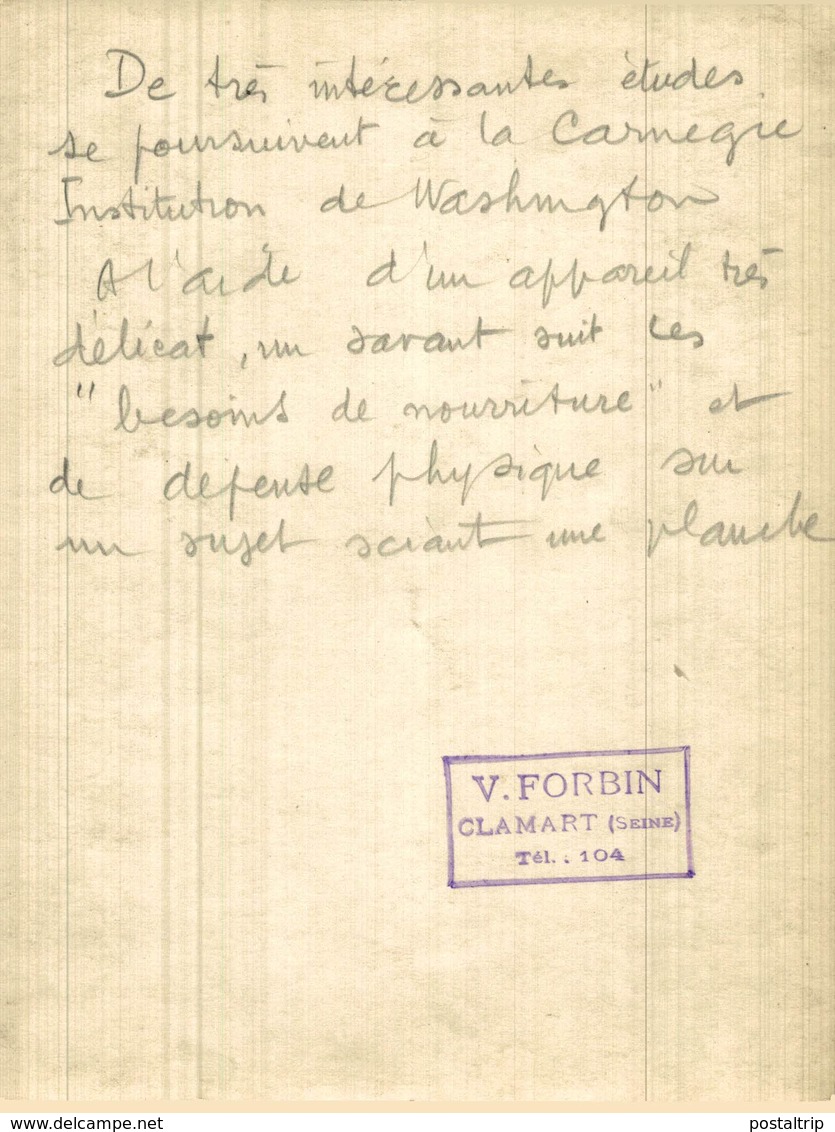 De très intéressantes études
se poursuivent à la Carnegie
Institution de Washington
A l'aide d'un appareil très
délicat, un savant suit les
"besoins de nourriture" et
de défense physique sur
un sujet sciant une planche
V. FORBIN
CLAMART (SEINE)
Tél. : 104
www.delcampe.net
postaltrip